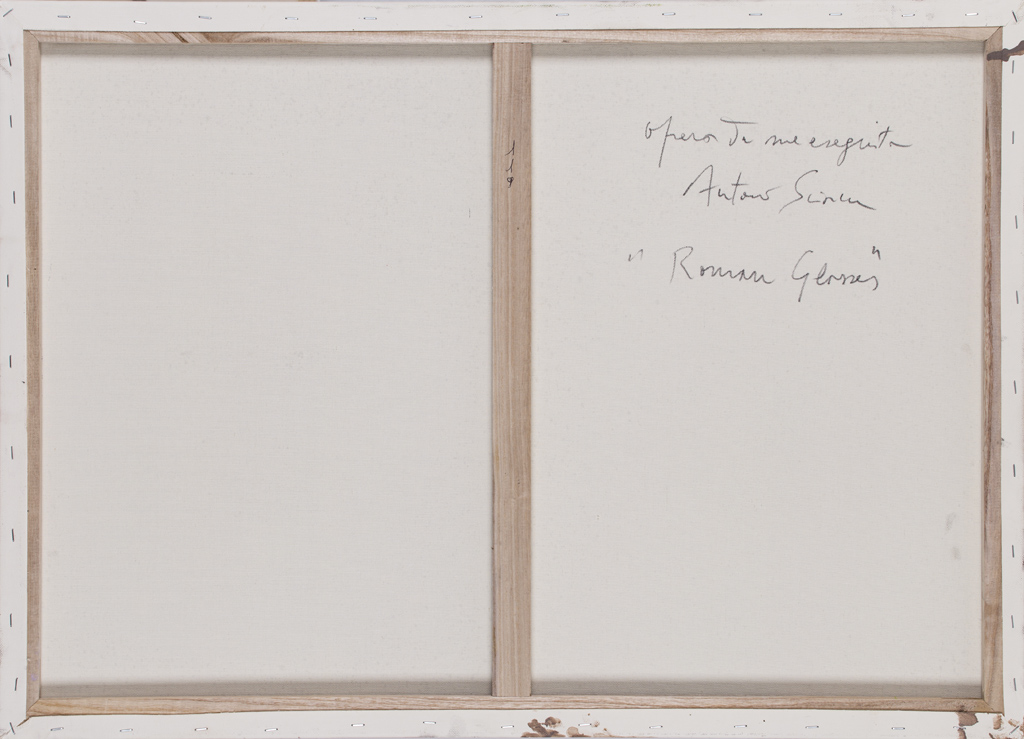 opera da me eseguita
Antonio
"Roman Glasses"